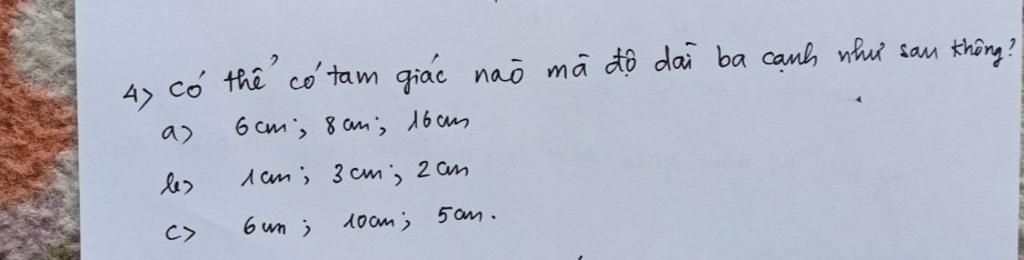 4> Có thể có tam giác nào mà độ dài ba cạnh như sau không?
a> 6cm; 8cm; 16cm
b> 1cm; 3cm; 2cm
c> 6cm; 10cm; 5cm.